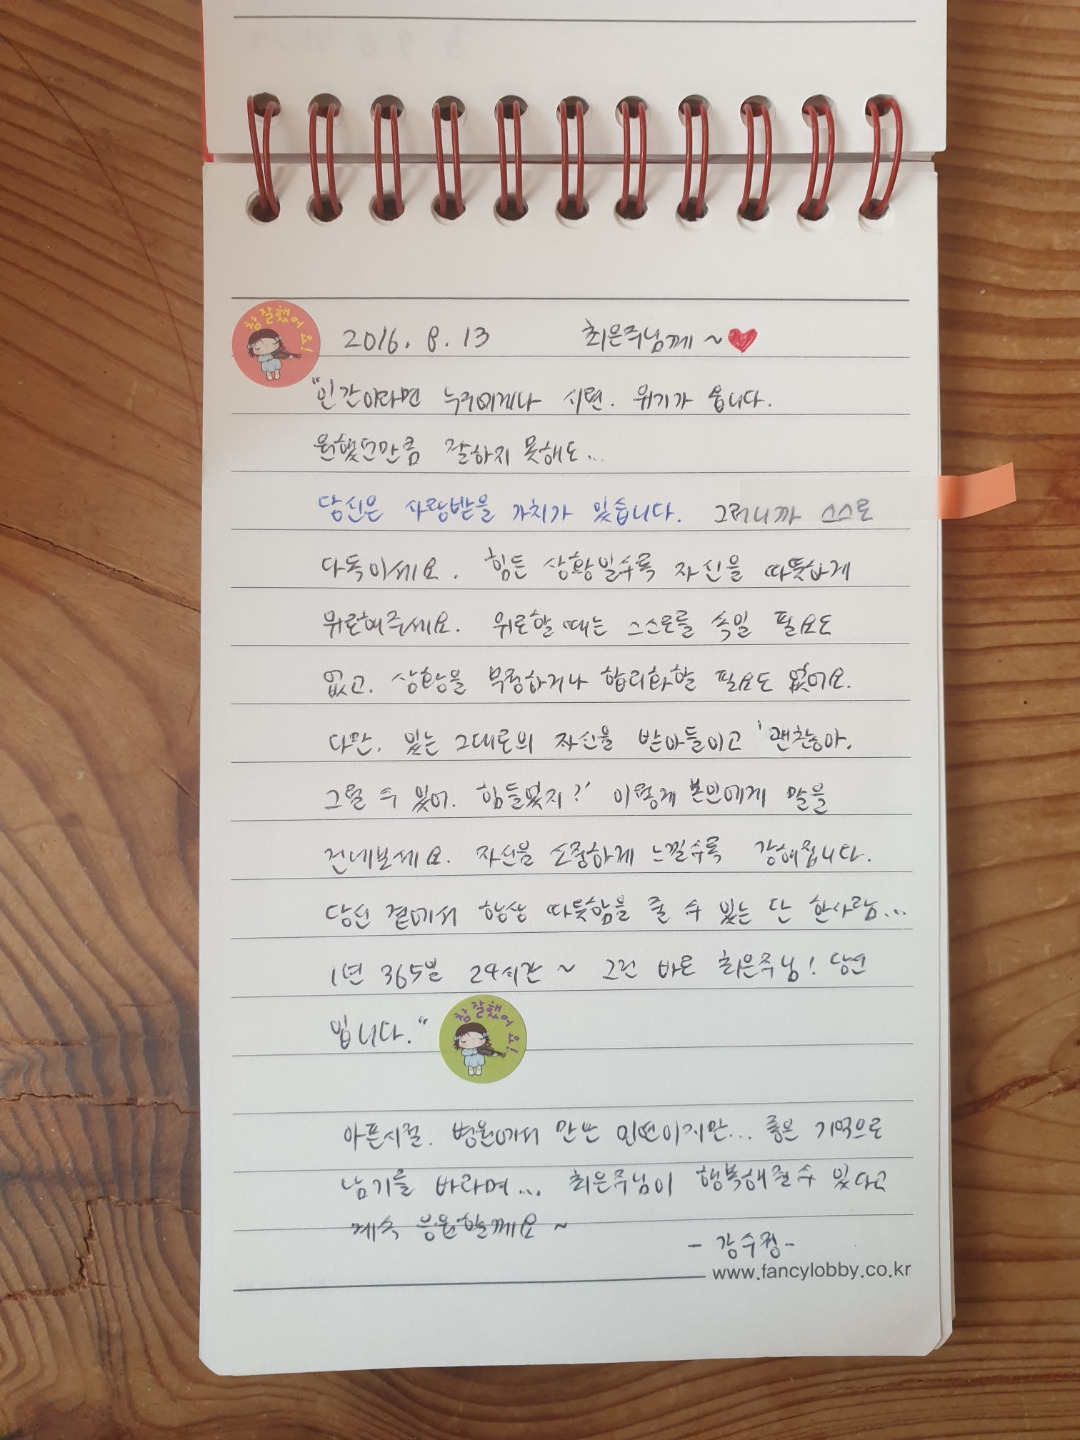 참 잘했어요!
2016. 8. 13 최은주님께 ~
"인간이라면 누구에게나 시련. 위기가 옵니다.
원했던만큼 잘하지 못해도...
당신은 사랑받을 가치가 있습니다. 그러니까 스스로
다독이세요. 힘든 상황일수록 자신을 따뜻하게
위로해주세요. 위로할 때는 스스로를 속일 필요도
없고. 상황을 부정하거나 합리화할 필요도 없어요.
다만. 있는 그대로의 자신을 받아들이고 '괜찮아.
그럴 수 있어. 힘들었지?' 이렇게 본인에게 말을
건네보세요. 자신을 소중하게 느낄수록 강해집니다.
당신 곁에서 항상 따뜻함을 줄 수 있는 단 한사람...
1년 365일 24시간 ~ 그건 바로 최은주님! 당신
입니다."
참 잘했어요!
아픈시절. 병원에서 만난 인연이지만... 좋은 기억으로
남기를 바라며... 최은주님이 행복해질수 있다고
계속 응원할께요 ~
- 강수정 -
www.fancylobby.co.kr